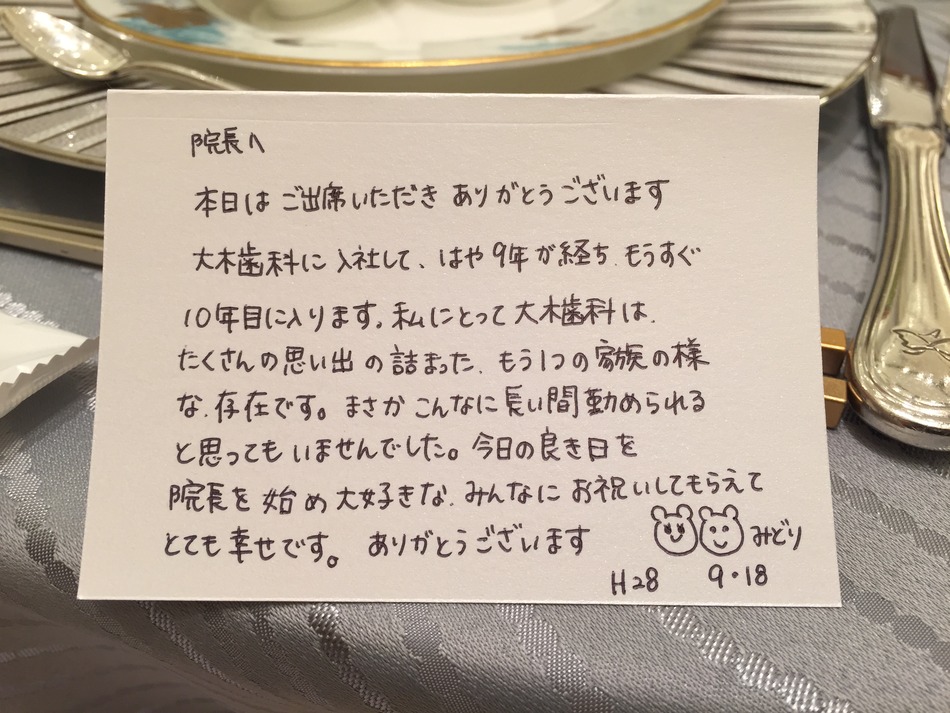 院長へ
本日は ご出席いただき ありがとうございます
大木歯科に 入社して、はや9年が経ち、もうすぐ
10年目に入ります。私にとって 大木歯科は、
たくさんの思い出の詰まった、もう1つの家族の様
な、存在です。まさか こんなに長い間勤められる
と思っても いませんでした。今日の良き日を
院長を 始め 大好きな、みんなに お祝いしてもらえて
とても 幸せです。 ありがとうございます
みどり
H28 9・18